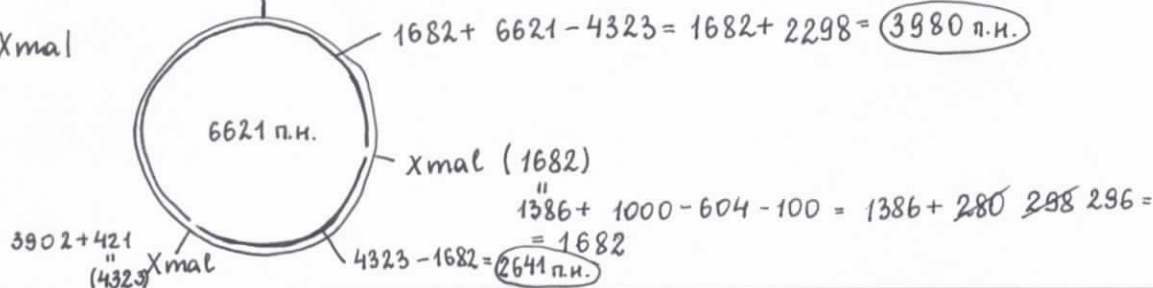 XmaI
1682 + 6621 - 4323 = 1682 + 2298 = 3980 п.н.
6621 п.н.
XmaI (1682)
"
1386 + 1000 - 604 - 100 = 1386 + 280 298 296 =
= 1682
3902 + 421
"
(4323) XmaI
4323 - 1682 = 2641 п.н.